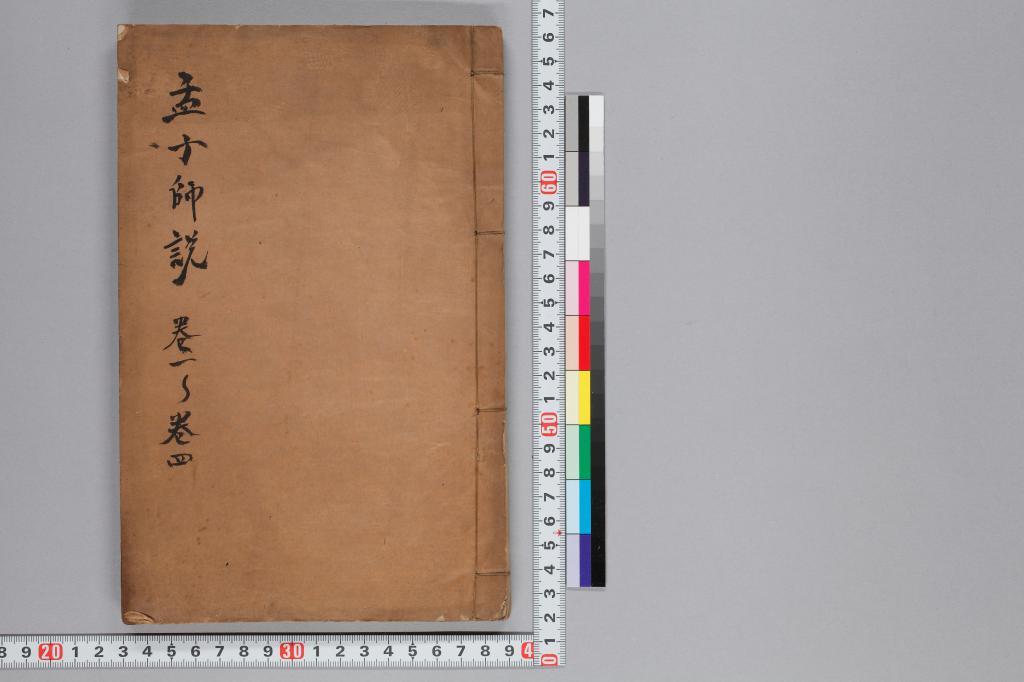 孟子師説 卷一〜卷四
7 6 5 4 3 2 1 60 9 8 7 6 5 4 3 2 1 50 9 8 7 6 5 4 3 2 1 0
8 9 20 1 2 3 4 5 6 7 8 9 30 1 2 3 4 5 6 7 8 9 4